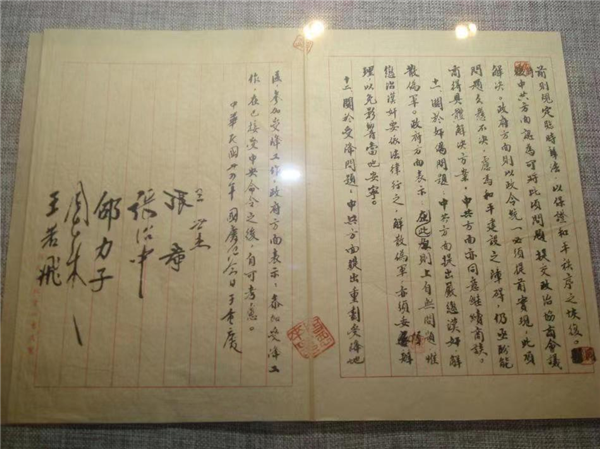 前則規定臨時辦法，以保證和平秩序之恢復。
中共方面認為可將此項問題提交政治協商會議
解決。政府方面則以政令統一必須提前實現，此項
問題久懸不決，慮為和平建設之障礙，仍亟盼能
商得具體解決方案。中共方面亦同意繼續商談。
十一、關於奸偽問題，中共方面提出嚴懲漢奸，解
散偽軍。政府方面表示：此在原則上自無問題，惟
懲治漢奸要依法律行之，解散偽軍亦須妥慎辦
理，以免影響當地安寧。
十二、關於受降問題，中共方面提出重劃受降地
區，參加受降工作。政府方面表示：參加受降工
作，在已接受中央命令之後，自可考慮。
中華民國卅四年國慶紀念日于重慶
王世杰
張羣
張治中
邵力子
周恩來
王若飛